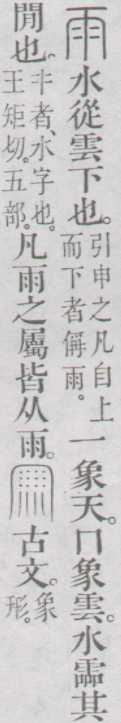 雨水從雲下也。引申之凡自上而下者偁雨。一象天。冂象雲。水霝其
閒也。𠕒者、水字也。王矩切。五部。凡雨之屬皆从雨。𠕲古文。象形。